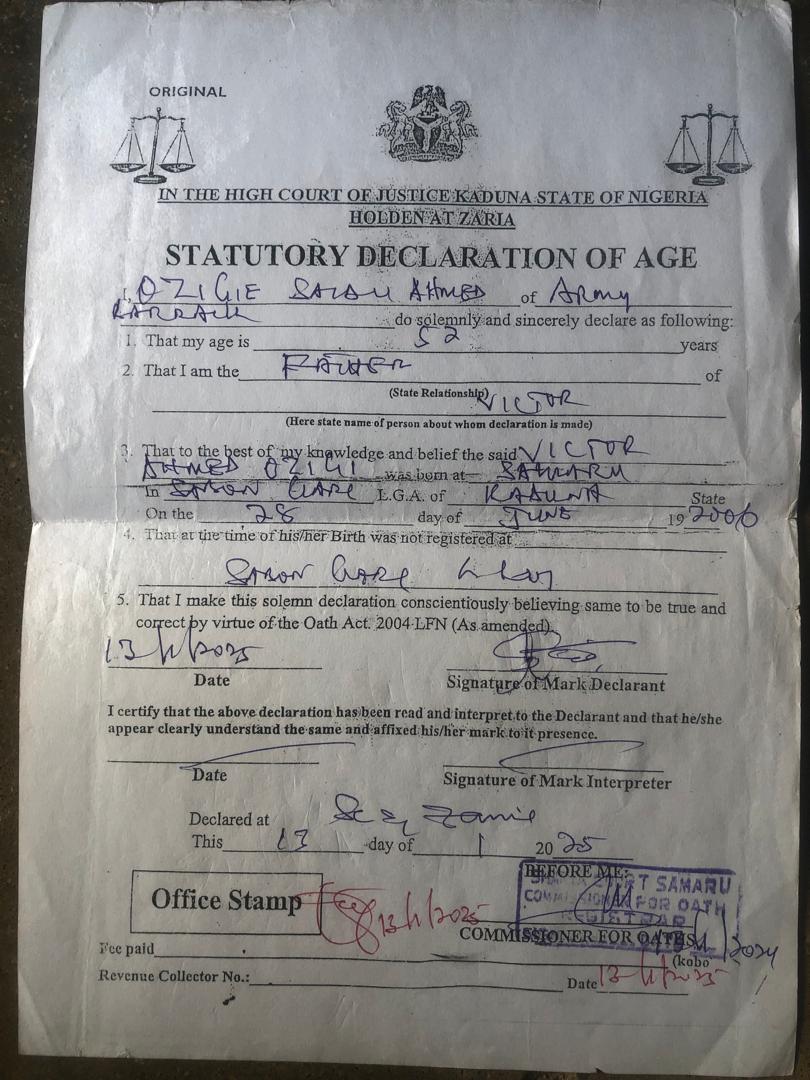 ORIGINAL
IN THE HIGH COURT OF JUSTICE KADUNA STATE OF NIGERIA
HOLDEN AT ZARIA
STATUTORY DECLARATION OF AGE
I, OZIGIE SALAU AHMED of ARMY
BARRACK do solemnly and sincerely declare as following:
1. That my age is 52 years
2. That I am the FATHER of
(State Relationship)
VICTOR
(Here state name of person about whom declaration is made)
3. That to the best of my knowledge and belief the said VICTOR
AHMED OZIGI was born at SAMARU
In SABON GARI L.G.A. of KADUNA State
On the 28 day of JUNE 19 2006
4. That at the time of his/her Birth was not registered at
SABON GARI
5. That I make this solemn declaration conscientiously believing same to be true and
correct by virtue of the Oath Act. 2004 LFN (As amended).
13/1/2025
Date Signature of Mark Declarant
I certify that the above declaration has been read and interpret to the Declarant and that he/she
appear clearly understand the same and affixed his/her mark to it presence.
Date Signature of Mark Interpreter
Declared at
This 13 day of 1 20 25
BEFORE ME:
RT SAMARU
COMMISSIONER FOR OATH
REGISTRAR
Office Stamp 13/1/2025
COMMISSIONER FOR OATHS
Fee paid (kobo
Revenue Collector No.: Date 13/1/2025